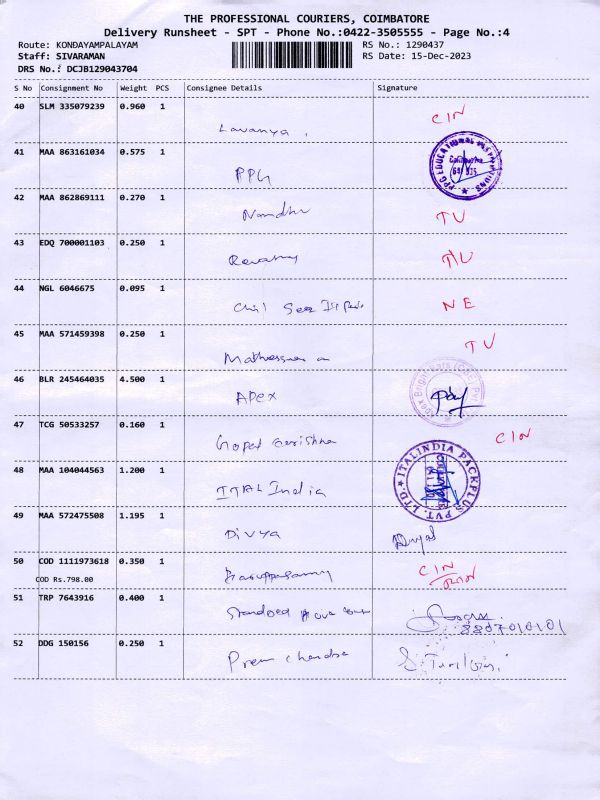 THE PROFESSIONAL COURIERS, COIMBATORE
Delivery Runsheet - SPT - Phone No.:0422-3505555 - Page No.:4
Route: KONDAYAMPALAYAM RS No.: 1290437
Staff: SIVARAMAN RS Date: 15-Dec-2023
DRS No.: DCJB129043704
S No Consignment No Weight PCS Consignee Details Signature
40 SLM 335079239 0.960 1
Lavanya. CIN
41 MAA 863161034 0.575 1
PPG PPG EDUCATIONAL INSTITUTIONS
42 MAA 862869111 0.270 1
Nandhu TU
43 EDQ 700001103 0.250 1
Revathy TU
44 NGL 6046675 0.095 1
NE
45 MAA 571459398 0.250 1
TU
46 BLR 245464035 4.500 1
APEX
47 TCG 50533257 0.160 1
Gopal Krishna CIN
48 MAA 104044563 1.200 1
ITAL India ITALINDIA PACKPLUS PVT. LTD.
49 MAA 572475508 1.195 1
Divya
50 COD 1111973618 0.350 1
COD Rs.798.00 CIN
51 TRP 7643916 0.400 1
52 DDG 150156 0.250 1
Prem